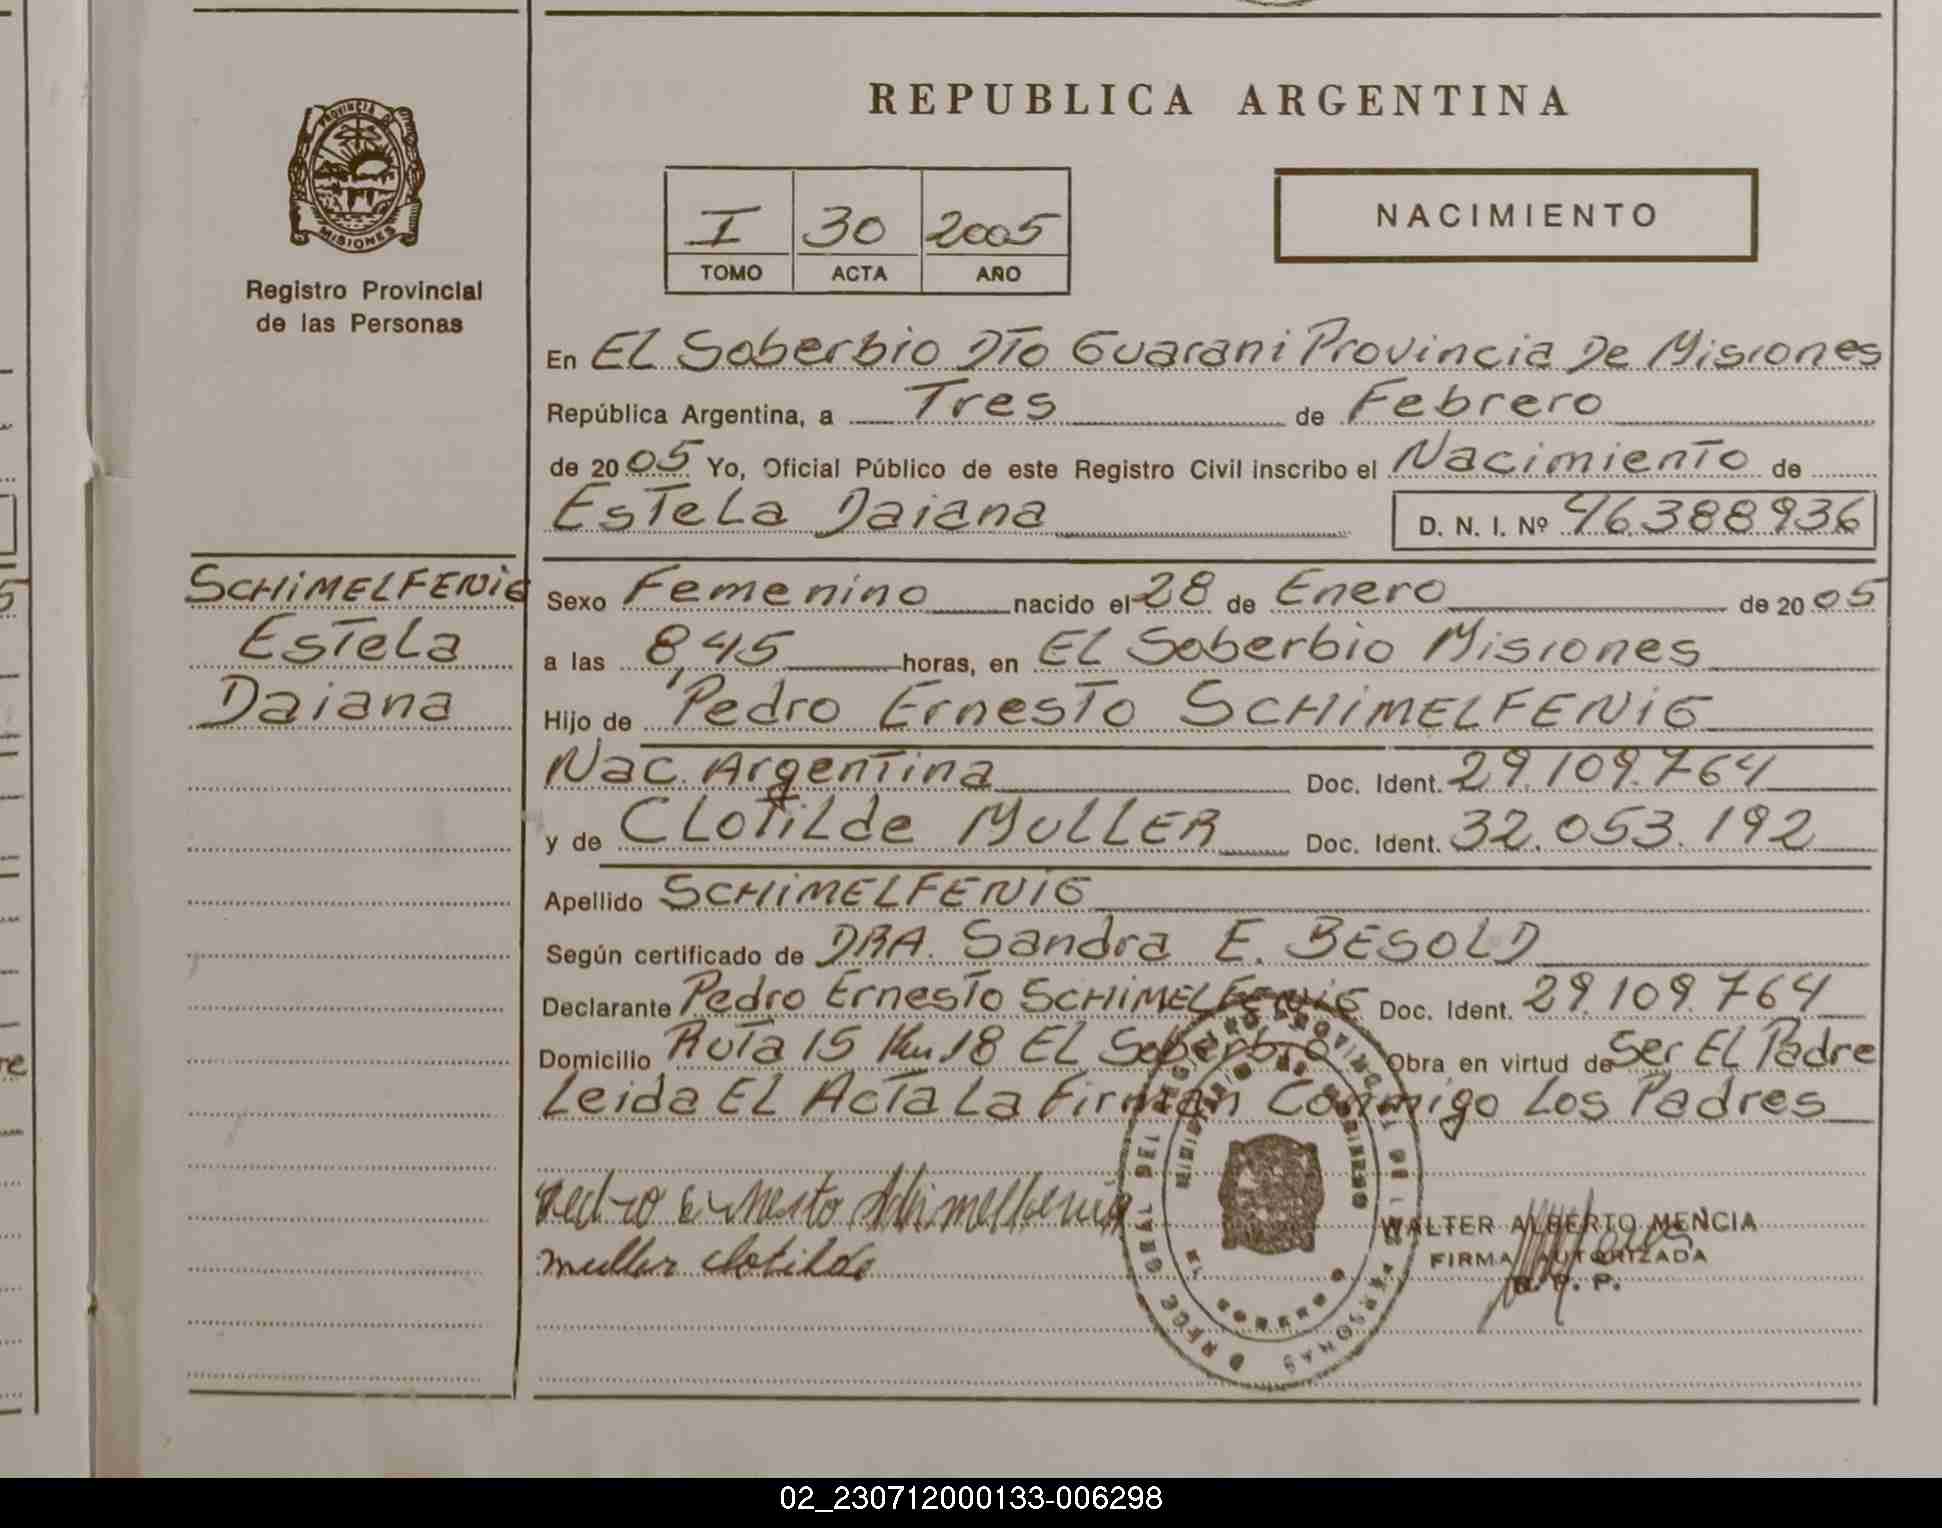 REPUBLICA ARGENTINA
PROVINCIA DE
MISIONES
Registro Provincial
de las Personas
I 30 2005
TOMO ACTA AÑO
NACIMIENTO
En EL Soberbio DTo Guarani Provincia De Misiones
República Argentina, a Tres de Febrero
de 2005 Yo, Oficial Público de este Registro Civil inscribo el Nacimiento de
Estela Daiana D. N. I. Nº 46.388.936
SCHIMELFENIG
Estela
Daiana
Sexo Femenino nacido el 28 de Enero de 2005
a las 8,45 horas, en EL Soberbio Misiones
Hijo de Pedro Ernesto SCHIMELFENIG
Nac. Argentina Doc. Ident. 29.109.764
y de CLotiLde MULLER Doc. Ident. 32.053.192
Apellido SCHIMELFENIG
Según certificado de DRA. Sandra E. BESOLD
Declarante Pedro Ernesto SCHIMELFENIG Doc. Ident. 29.109.764
Domicilio Ruta 15 Km 18 EL Soberbio Obra en virtud de Ser EL Padre
Leida EL Acta La Firman Conmigo Los Padres
Pedro Ernesto Schimelfenig
muller clotilde
WALTER ALBERTO MENCIA
FIRMA AUTORIZADA
R. P. P.
02_230712000133-006298